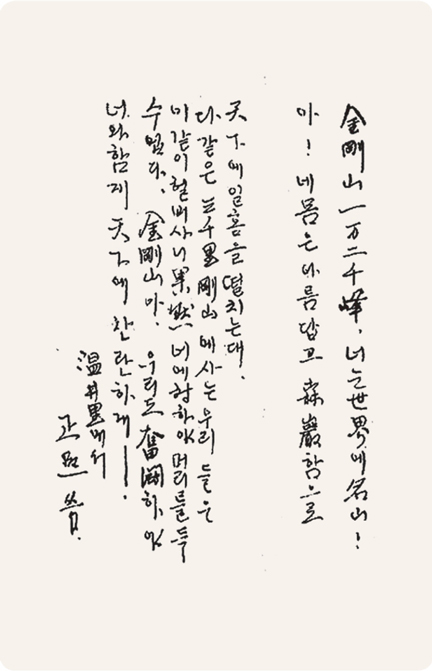 金剛山 一万二千峰, 너는 世界에 名山!
아! 네 몸은 아름답고 森嚴함으로
天下에 일홈을 떨치는대.
다 같은 三千里 剛山에 사는 우리들은
이같이 헐버사니 果然 너에 對하야 머리를 들
수 없다. 金剛山아. 우리도 奮鬪하야
너와 함께 天下에 찬란하게 ―.
温井里에서
쓴.